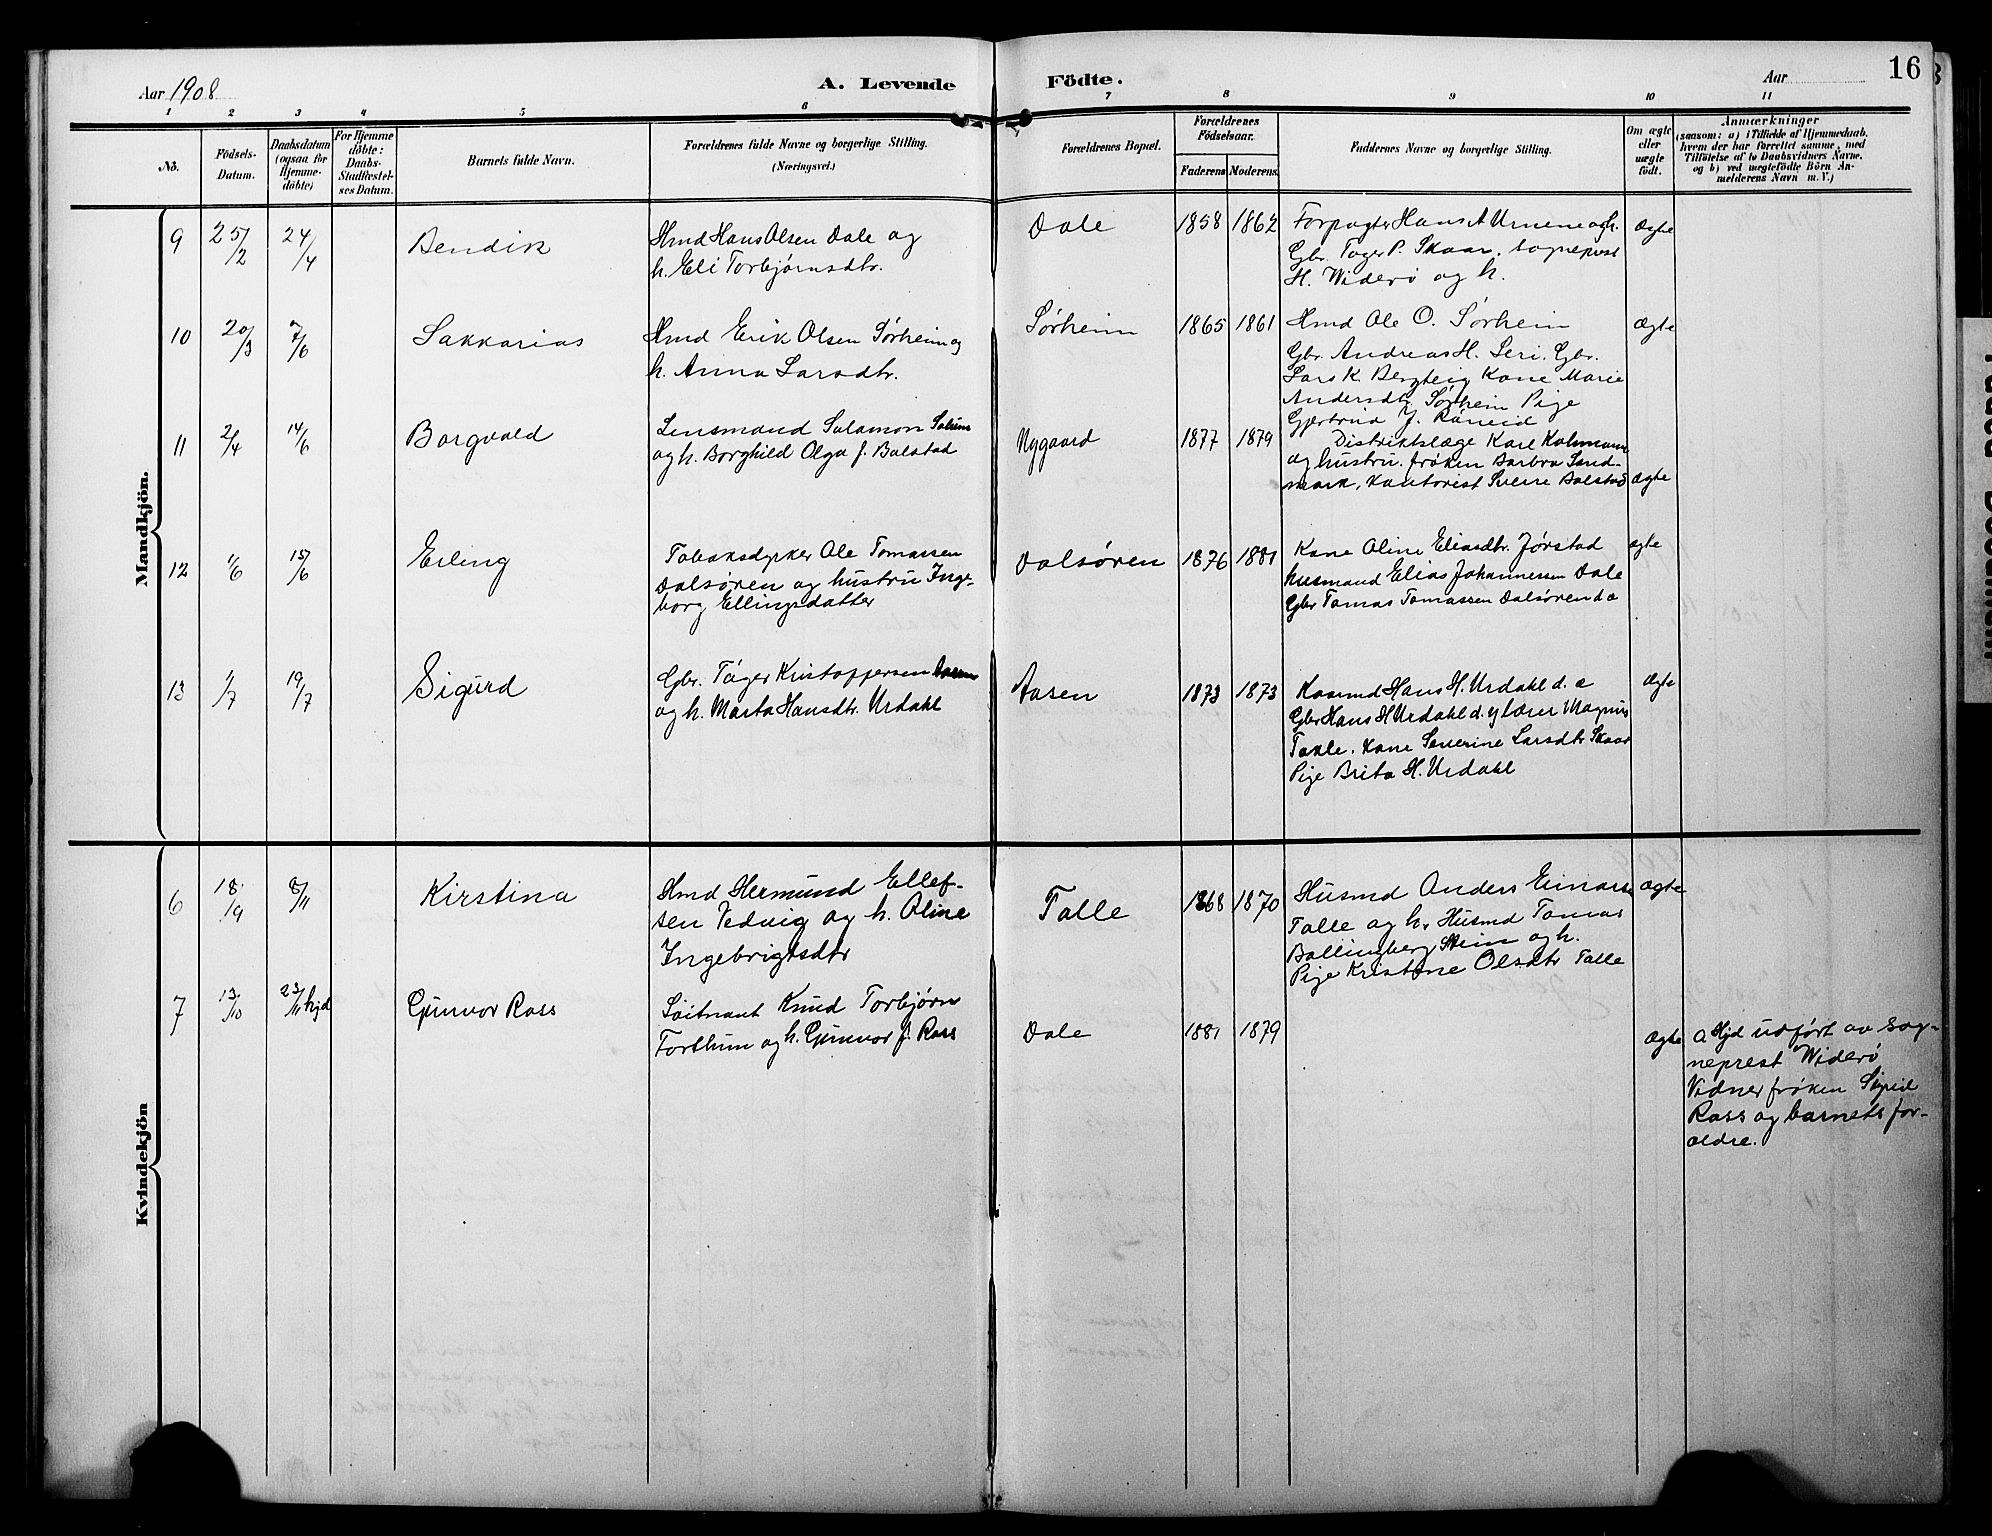 Aar 1908
A. Levende Födte.
Aar
16
1 2 3 4 5 6 7 8 9 10 11
No.
Födsels-
Datum.
Daabsdatum
(ogsaa for
Hjemme-
döbte)
For Hjemme
döbte:
Daabs-
Stadfæstel-
ses Datum.
Barnets fulde Navn.
Forældrenes fulde Navne og borgerlige Stilling.
(Næringsvei.)
Forældrenes Bopæl.
Forældrenes
Födselsaar.
Faderens
Moderens
Faddernes Navne og borgerlige Stilling.
Om ægte
eller
uægte
födt.
Anmærkninger
(saasom: a) i Tilfælde af Hjemmedaab,
hvem der har forrettet samme, med
Tilföielse af to Daabsvidners Navne.
og b) ved uægtefödte Börn An-
melderens Navn m. V.)
Mandkjön.
9
25/2
24/4
Bendik
Hmd Hans Olsen Dale og
h. Eli Torbjørnsdtr.
Dale
1858
1862
Forpagter Hans A Urnene og h.
Gbr. Tøger P. Skaar, sogneprest
H. Widerö og h.
Ægte
10
20/3
7/6
Sakkarias
Hmd Erik Olsen Sørheim og
h. Anna Larsdtr.
Sørheim
1865
1861
Hmd Ole O. Sørheim
Gbr. Andreas H. Leri. Gbr.
Lars K. Bergteig Kone Marie
Andersdtr. Sørheim Pige
Gjertrud J. Röneid
Ægte
11
2/4
14/6
Borgvald
Lensmand Salamon
og h. Borghild Olga f. Bolstad
Nygaard
1877
1879
Distriktslæge Karl Kahrmann
og hustru. frøken Barbra Sand-
mark, Kantorist Sverre Bolstad
Ægte
12
1/6
15/6
Erling
Tobaksdyrker Ole Tomassen
Dalsøren og hustru Inge-
borg Ellingsdatter
Dalsøren
1876
1881
Kone Oline Eliasdtr. Jørstad
husmand Elias Johannessen Dale
Gbr Tomas Tomassen Dalsøren d æ
Ægte
13
1/7
19/7
Sigurd
Gbr. Tøger Kristoffersen Aasen
og h. Marta Hansdtr. Urdahl
Aasen
1873
1873
Kaarmd Hans H. Urdahl d. æ
Gbr Hans H Urdahl d. y lærer Magnus
Takle. Kone Severine Larsdtr Skaar
Pige Brita H. Urdahl
Ægte
Kvindekjön
6
18/9
8/11
Kirstina
Hmd Hermund Ellef-
sen Vedvig og h. Oline
Ingebrigtsdtr
Talle
1868
1870
Husmd Anders Einarsen
Talle og h. Husmd Tomas
Bollingberg og h.
Pige Kristine Olsdtr Talle
Ægte
7
13/10
23/11 hjd
Gunvor Rass
Løitnant Knud Torbjørn
Forthun og h. Gunvor f. Rass
Dale
1881
1879
Ægte
a Hjd udført av sog-
neprest Widerö
Vidner frøken Sigrid
Rass og barnets for-
ældre.